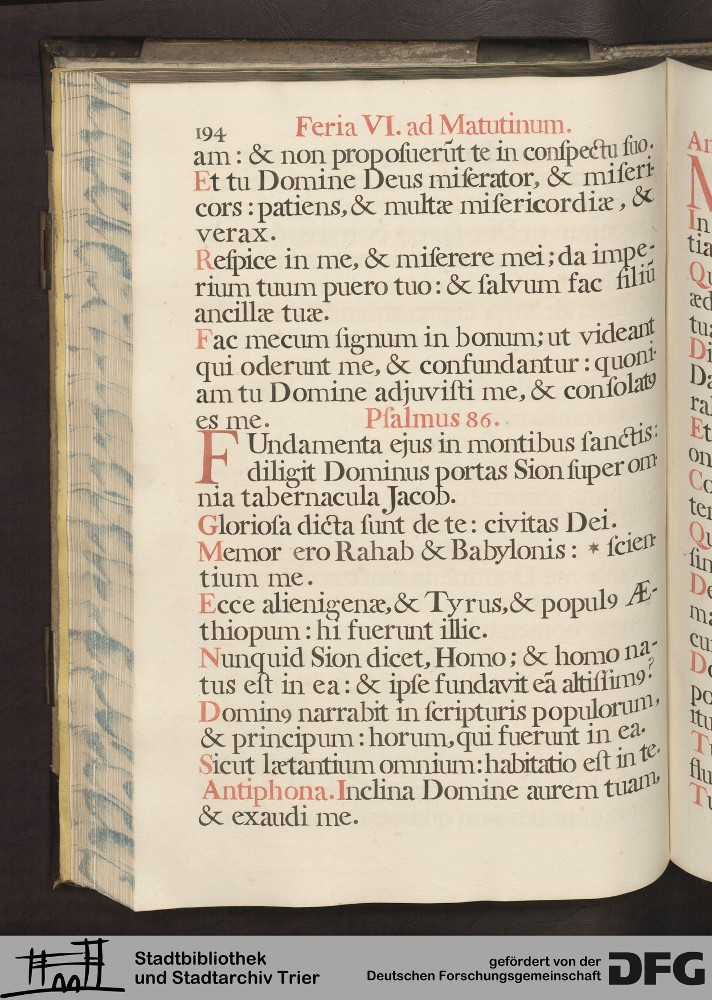 194 Feria VI. ad Matutinum.
am : & non propoſuerūt te in conſpectu ſuo.
Et tu Domine Deus miſerator, & miſeri-
cors : patiens, & multæ miſericordiæ, &
verax.
Reſpice in me, & miſerere mei; da impe-
rium tuum puero tuo : & ſalvum fac filiū
ancillæ tuæ.
Fac mecum ſignum in bonum; ut videant
qui oderunt me, & confundantur : quoni-
am tu Domine adjuviſti me, & conſolatꝯ
es me. Pſalmus 86.
FUndamenta ejus in montibus ſanctis:
diligit Dominus portas Sion ſuper om-
nia tabernacula Jacob.
Glorioſa dicta ſunt de te : civitas Dei.
Memor ero Rahab & Babylonis : * ſcien-
tium me.
Ecce alienigenæ, & Tyrus, & populꝯ Æ-
thiopum : hi fuerunt illic.
Nunquid Sion dicet, Homo; & homo na-
tus eſt in ea : & ipſe fundavit eā altiſſimꝯ?
Dominꝯ narrabit in ſcripturis populorum,
& principum : horum, qui fuerunt in ea.
Sicut lætantium omnium: habitatio eſt in te.
Antiphona. Inclina Domine aurem tuam,
& exaudi me.
An
M
In
tia
Qu
æd
tu
Di
Da
ral
Et
on
Co
ter
Qu
ſin
De
ma
cu
Do
po
itu
T
flu
Tu
Stadtbibliothek
und Stadtarchiv Trier
gefördert von der
Deutschen Forschungsgemeinschaft
DFG